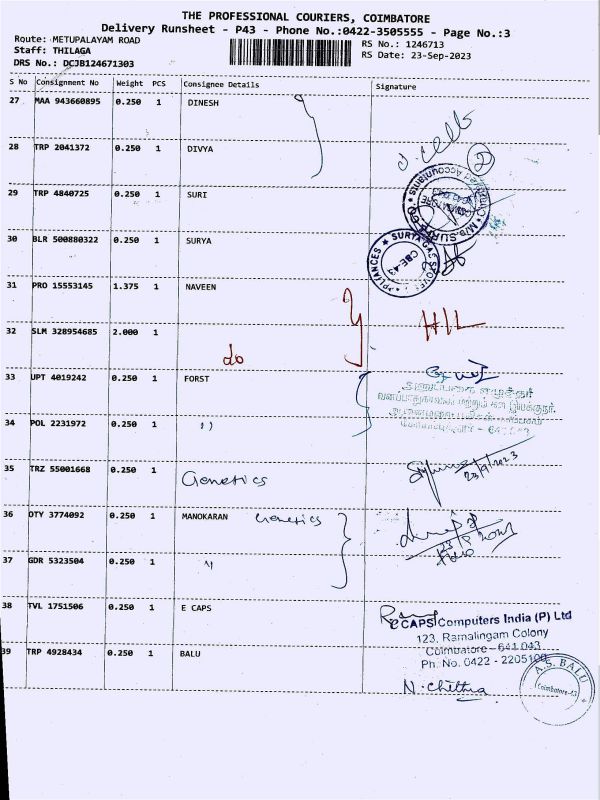 THE PROFESSIONAL COURIERS, COIMBATORE
Delivery Runsheet - P43 - Phone No.:0422-3505555 - Page No.:3
Route: METUPALAYAM ROAD
Staff: THILAGA
DRS No.: DCJB124671303
RS No.: 1246713
RS Date: 23-Sep-2023
S No Consignment No Weight PCS Consignee Details Signature
27 MAA 943660895 0.250 1 DINESH
28 TRP 2041372 0.250 1 DIVYA
29 TRP 4840725 0.250 1 SURI
30 BLR 500880322 0.250 1 SURYA
SURYA GAS STOVES
CBE-43
31 PRO 15553145 1.375 1 NAVEEN
HIL
32 SLM 328954685 2.000 1
do
33 UPT 4019242 0.250 1 FORST
34 POL 2231972 0.250 1 "
35 TRZ 55001668 0.250 1 Genetics
23/9/2023
36 DTY 3774092 0.250 1 MANOKARAN Genetics
37 GDR 5323504 0.250 1 "
38 TVL 1751506 0.250 1 E CAPS
e CAPS Computers India (P) Ltd
123, Ramalingam Colony
Coimbatore - 641 043
Ph. No. 0422 - 2205100
39 TRP 4928434 0.250 1 BALU
N. Chithra
A.S. BALU
Coimbatore-43